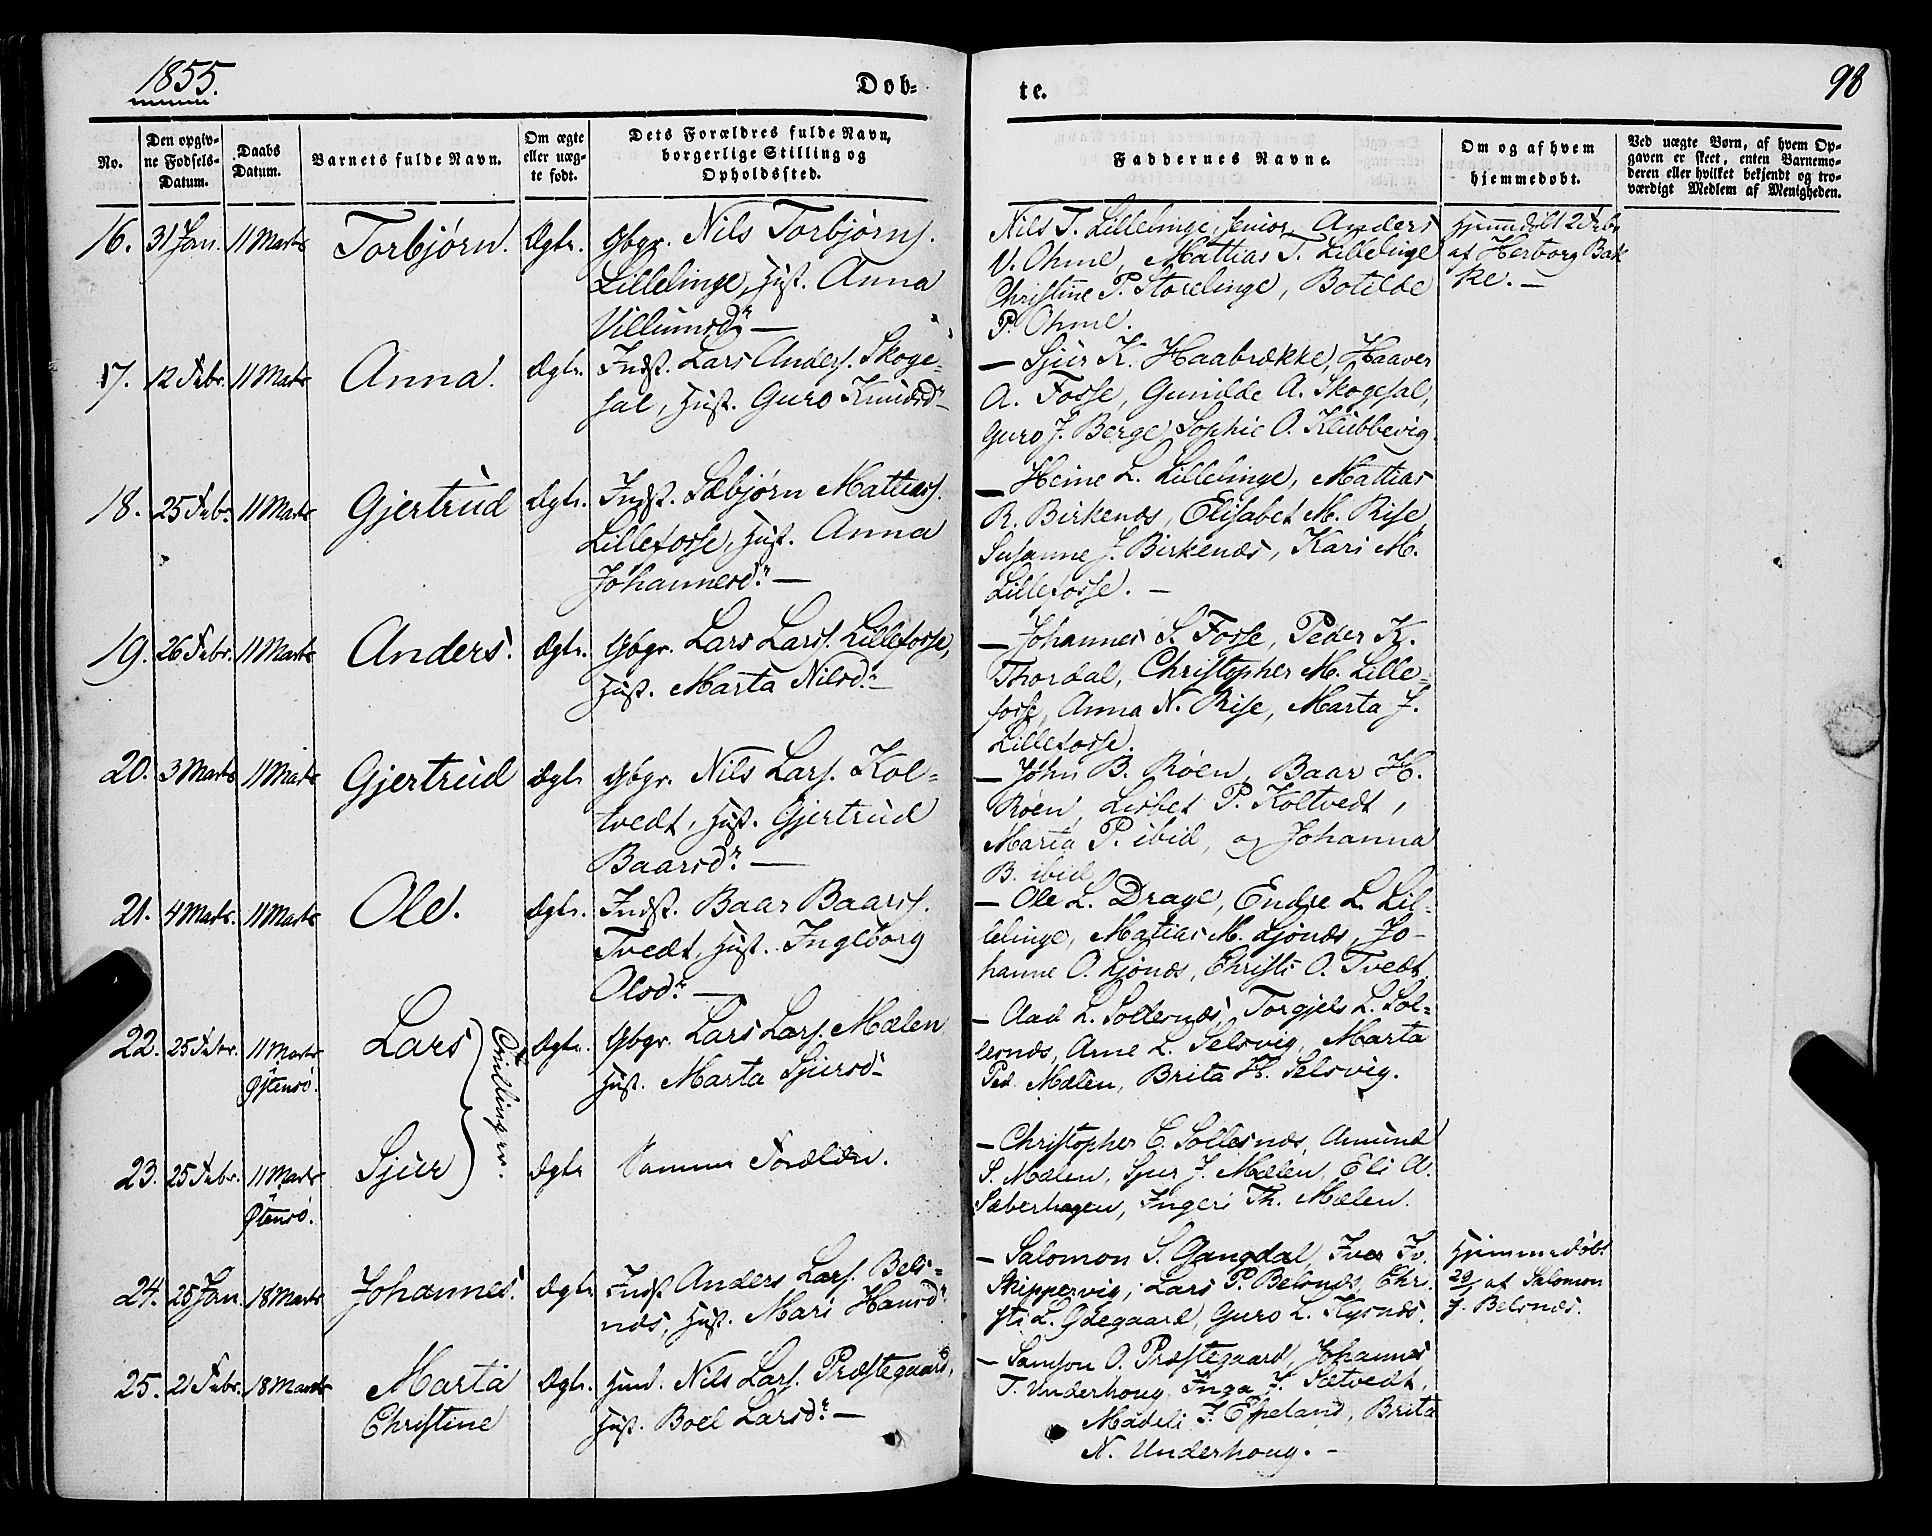 1855.
Døb-
te.
98
No.
Den opgiv-
ne Fødsels-
Datum.
Daabs
Datum.
Barnets fulde Navn.
Om ægte
eller uæg-
te født.
Dets Forældres fulde Navn,
borgerlige Stilling og
Opholdssted.
Faddernes Navne.
Om og af hvem
hjemmedøbt.
Ved uægte Børn, af hvem Op-
gaven er skeet, enten Barnemo-
deren eller hvilket bekjendt og tro-
værdigt Medlem af Menigheden.
16. 31 Jan. 11 Marts Torbjørn. Ægte. Gbgr. Nils Torbjørns.
Lillelinge, Hust. Anna
Villumsdr. —
Nils T. Lillelinge, senior, Anders
V. Ohme, Mattias T. Lillelinge
Christine P. Storelinge, Botilde
P. Ohme.
Hjemmedøbt 2 Febr
af Herborg Bak
ke. —
17. 12 Febr. 11 Marts Anna. Ægte. Indst. Lars Anders. Skoge-
sal, Hust. Guro Knudsdr —
— Sjur K. Haabrække, Haaver
A. Fosse, Gunilde A. Skogesal,
Guro J. Berge, Sophie O. Klubbevig.
18. 25 Febr. 11 Marts Gjertrud Ægte. Indst. Sæbjørn Mattias.
Lillefosse, Hust. Anna
Johannesdr. —
— Heine L. Lillelinge, Mattias
R. Birkenæs, Elisabet M. Rise,
Susanne J. Birkenæs, Kari M.
Lillefosse. —
19. 26 Febr. 11 Marts Anders. Ægte. Gbgr. Lars Larss. Lillefosse,
Hust. Marta Nilsdr. —
— Johannes S. Fosse, Peder K.
Thordal, Christopher M. Lille-
fosse, Anna N. Rise, Marta J.
Lillefosse.
20. 3 Marts 11 Marts Gjertrud Ægte Gbgr. Nils Lars. Kol-
tvedt, Hust. Gjertrud
Baarsdr. —
— John B. Røen, Baar H.
Røen, Lisbet P. Koltvedt,
Marta P. ibid, og Johanna
B. ibid
21. 4 Marts. 11 Marts Ole. Ægte. Indst. Baar Baars.
Tvedt, Hust. Ingeborg
Olsdr. —
— Ole L. Drage, Endre L. Lil-
lelinge, Matias M. Ljønæs, Jo-
hanne O. Ljønæs, Christi O. Tvedt.
22. 25 Febr. 11 Marts
Østensø.
Lars Tvillinger. Ægte. Gbgr. Lars Lars. Mælen
Hust. Marta Sjursdr —
— Aad L. Sollesnæs, Torgjels L. Sol-
lesnæs, Arne L. Selsvig, Marta
Ped. Mælen, Brita H. Selsvig.
23. 25 Febr. 11 Marts
Østensø.
Sjur Ægte Samme Forældre.
— Christopher C. Sollesnæs, Amund
S. Mælen, Sjur J. Mælen, Eli A.
Sæberhagen, Ingeri Th. Mælen.
24. 25 Jan. 18 Marts Johannes. Ægte Indst Anders Lars. Bels-
næs, Hust. Mari Hansdr.
— Salomon S. Gangdal, Iver Iv.
Skippervig, Lars P. Belsnæs, Chri-
sti L. Ødegaard, Guro L. Kysnæs.
Hjemmedøbt
29/1 af Salomon
J. Belsnæs.
25. 21 Febr. 18 Marts Marta
Christine
Ægte. Huusm. Nils Lars. Præstegaard,
Hust. Boel Larsdr. —
— Samson O. Præstegaard, Johannes
T. Underhoug, Inga J. Tætvedt,
Madeli J. Espeland, Brita
N. Underhoug. —